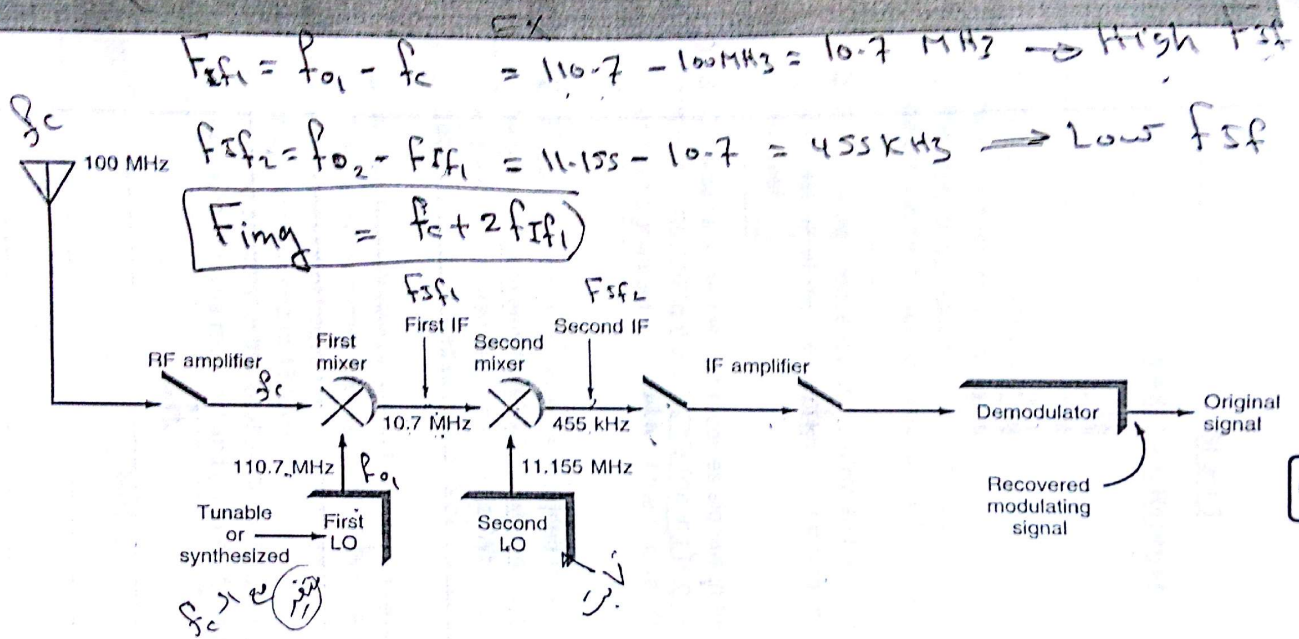 EX
FIf1 = fo1 - fc = 110.7 - 100MHz = 10.7 MHz → High FIf
fc
100 MHz
FIf2 = fo2 - FIf1 = 11.155 - 10.7 = 455 KHz ⇒ Low fIf
Fimg = fc + 2 fIf1
FIf1
FIf2
First IF
Second IF
RF amplifier
fc
First
mixer
Second
mixer
IF amplifier
10.7 MHz
455 kHz
Demodulator
Original
signal
110.7 MHz
fo1
11.155 MHz
Recovered
modulating
signal
Tunable
or
synthesized
First
LO
Second
LO
fc